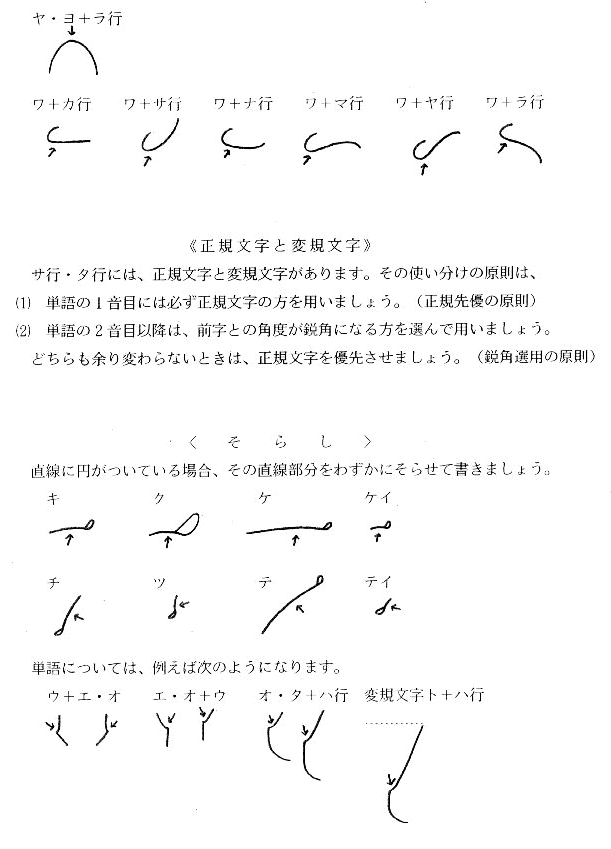 ヤ・ヨ+ラ行
ワ+カ行 ワ+サ行 ワ+ナ行 ワ+マ行 ワ+ヤ行 ワ+ラ行
《正規文字と変規文字》
サ行・タ行には、正規文字と変規文字があります。その使い分けの原則は、
(1) 単語の1音目には必ず正規文字の方を用いましょう。(正規先優の原則)
(2) 単語の2音目以降は、前字との角度が鋭角になる方を選んで用いましょう。
どちらも余り変わらないときは、正規文字を優先させましょう。(鋭角選用の原則)
〈そらし〉
直線に円がついている場合、その直線部分をわずかにそらせて書きましょう。
キ ク ケ ケイ
チ ツ テ テイ
単語については、例えば次のようになります。
ウ+エ・オ エ・オ+ウ オ・タ+ハ行 変規文字ト+ハ行